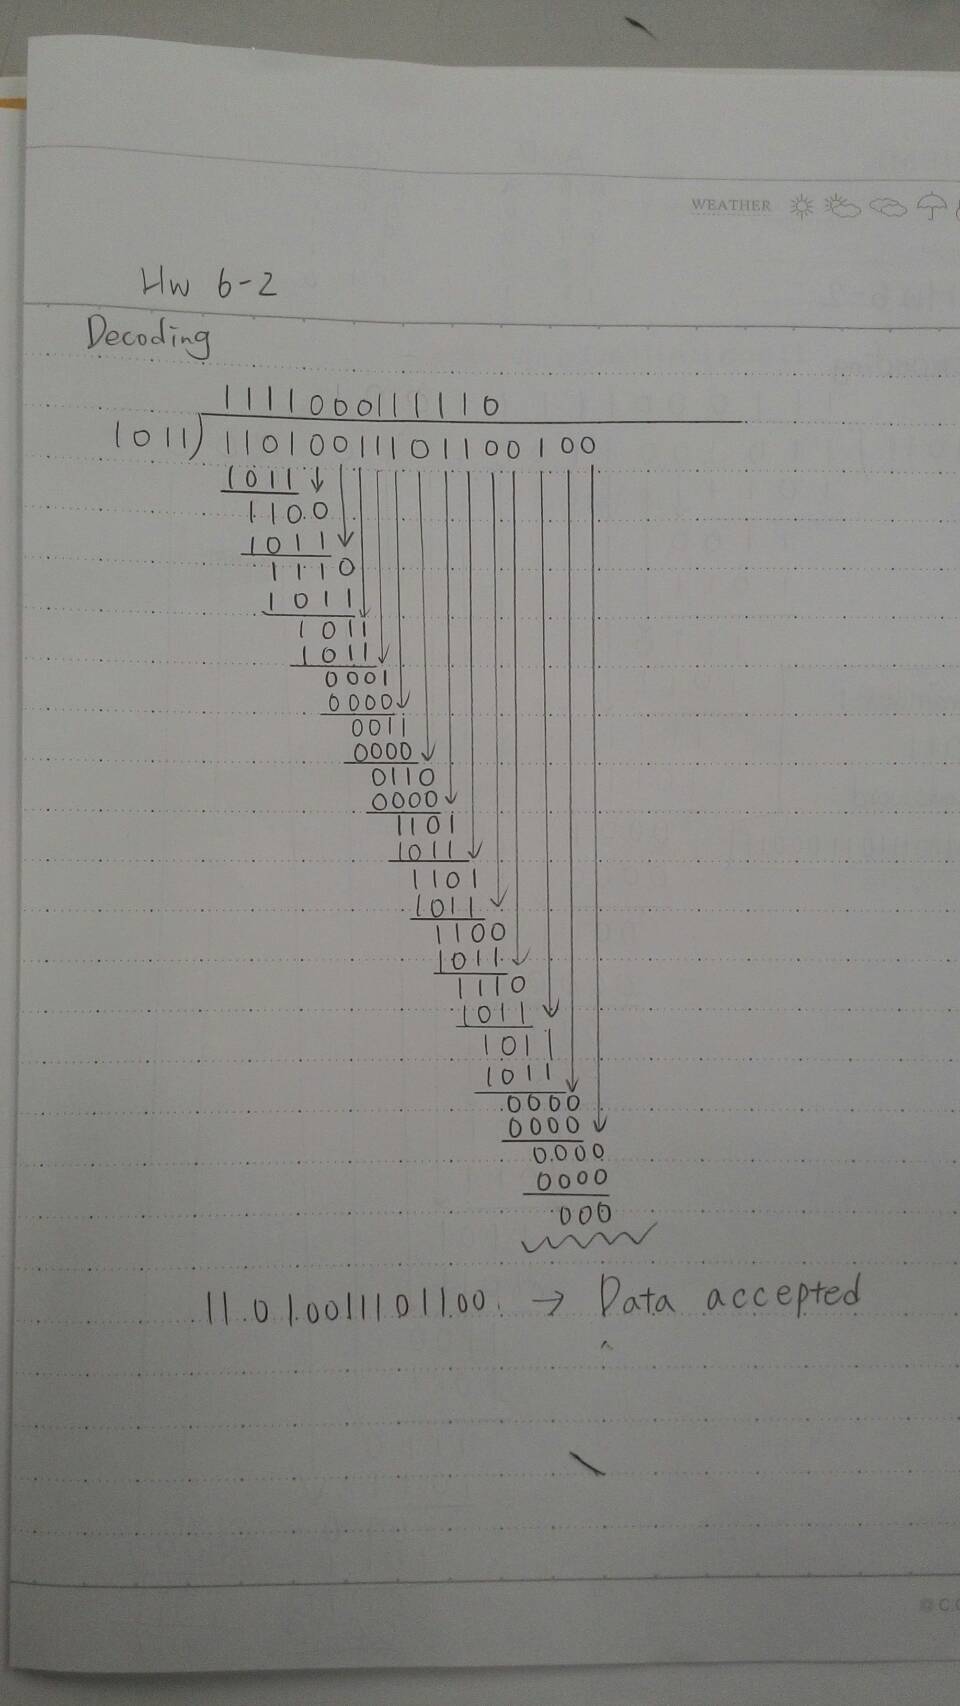 WEATHER
Hw 6-2
Decoding
1111000111110
1011)11010011101100100
1011
1100
1011
1110
1011
1011
1011
0001
0000
0011
0000
0110
0000
1101
1011
1101
1011
1100
1011
1110
1011
1011
1011
0000
0000
0000
0000
000
11010011101100 → Data accepted